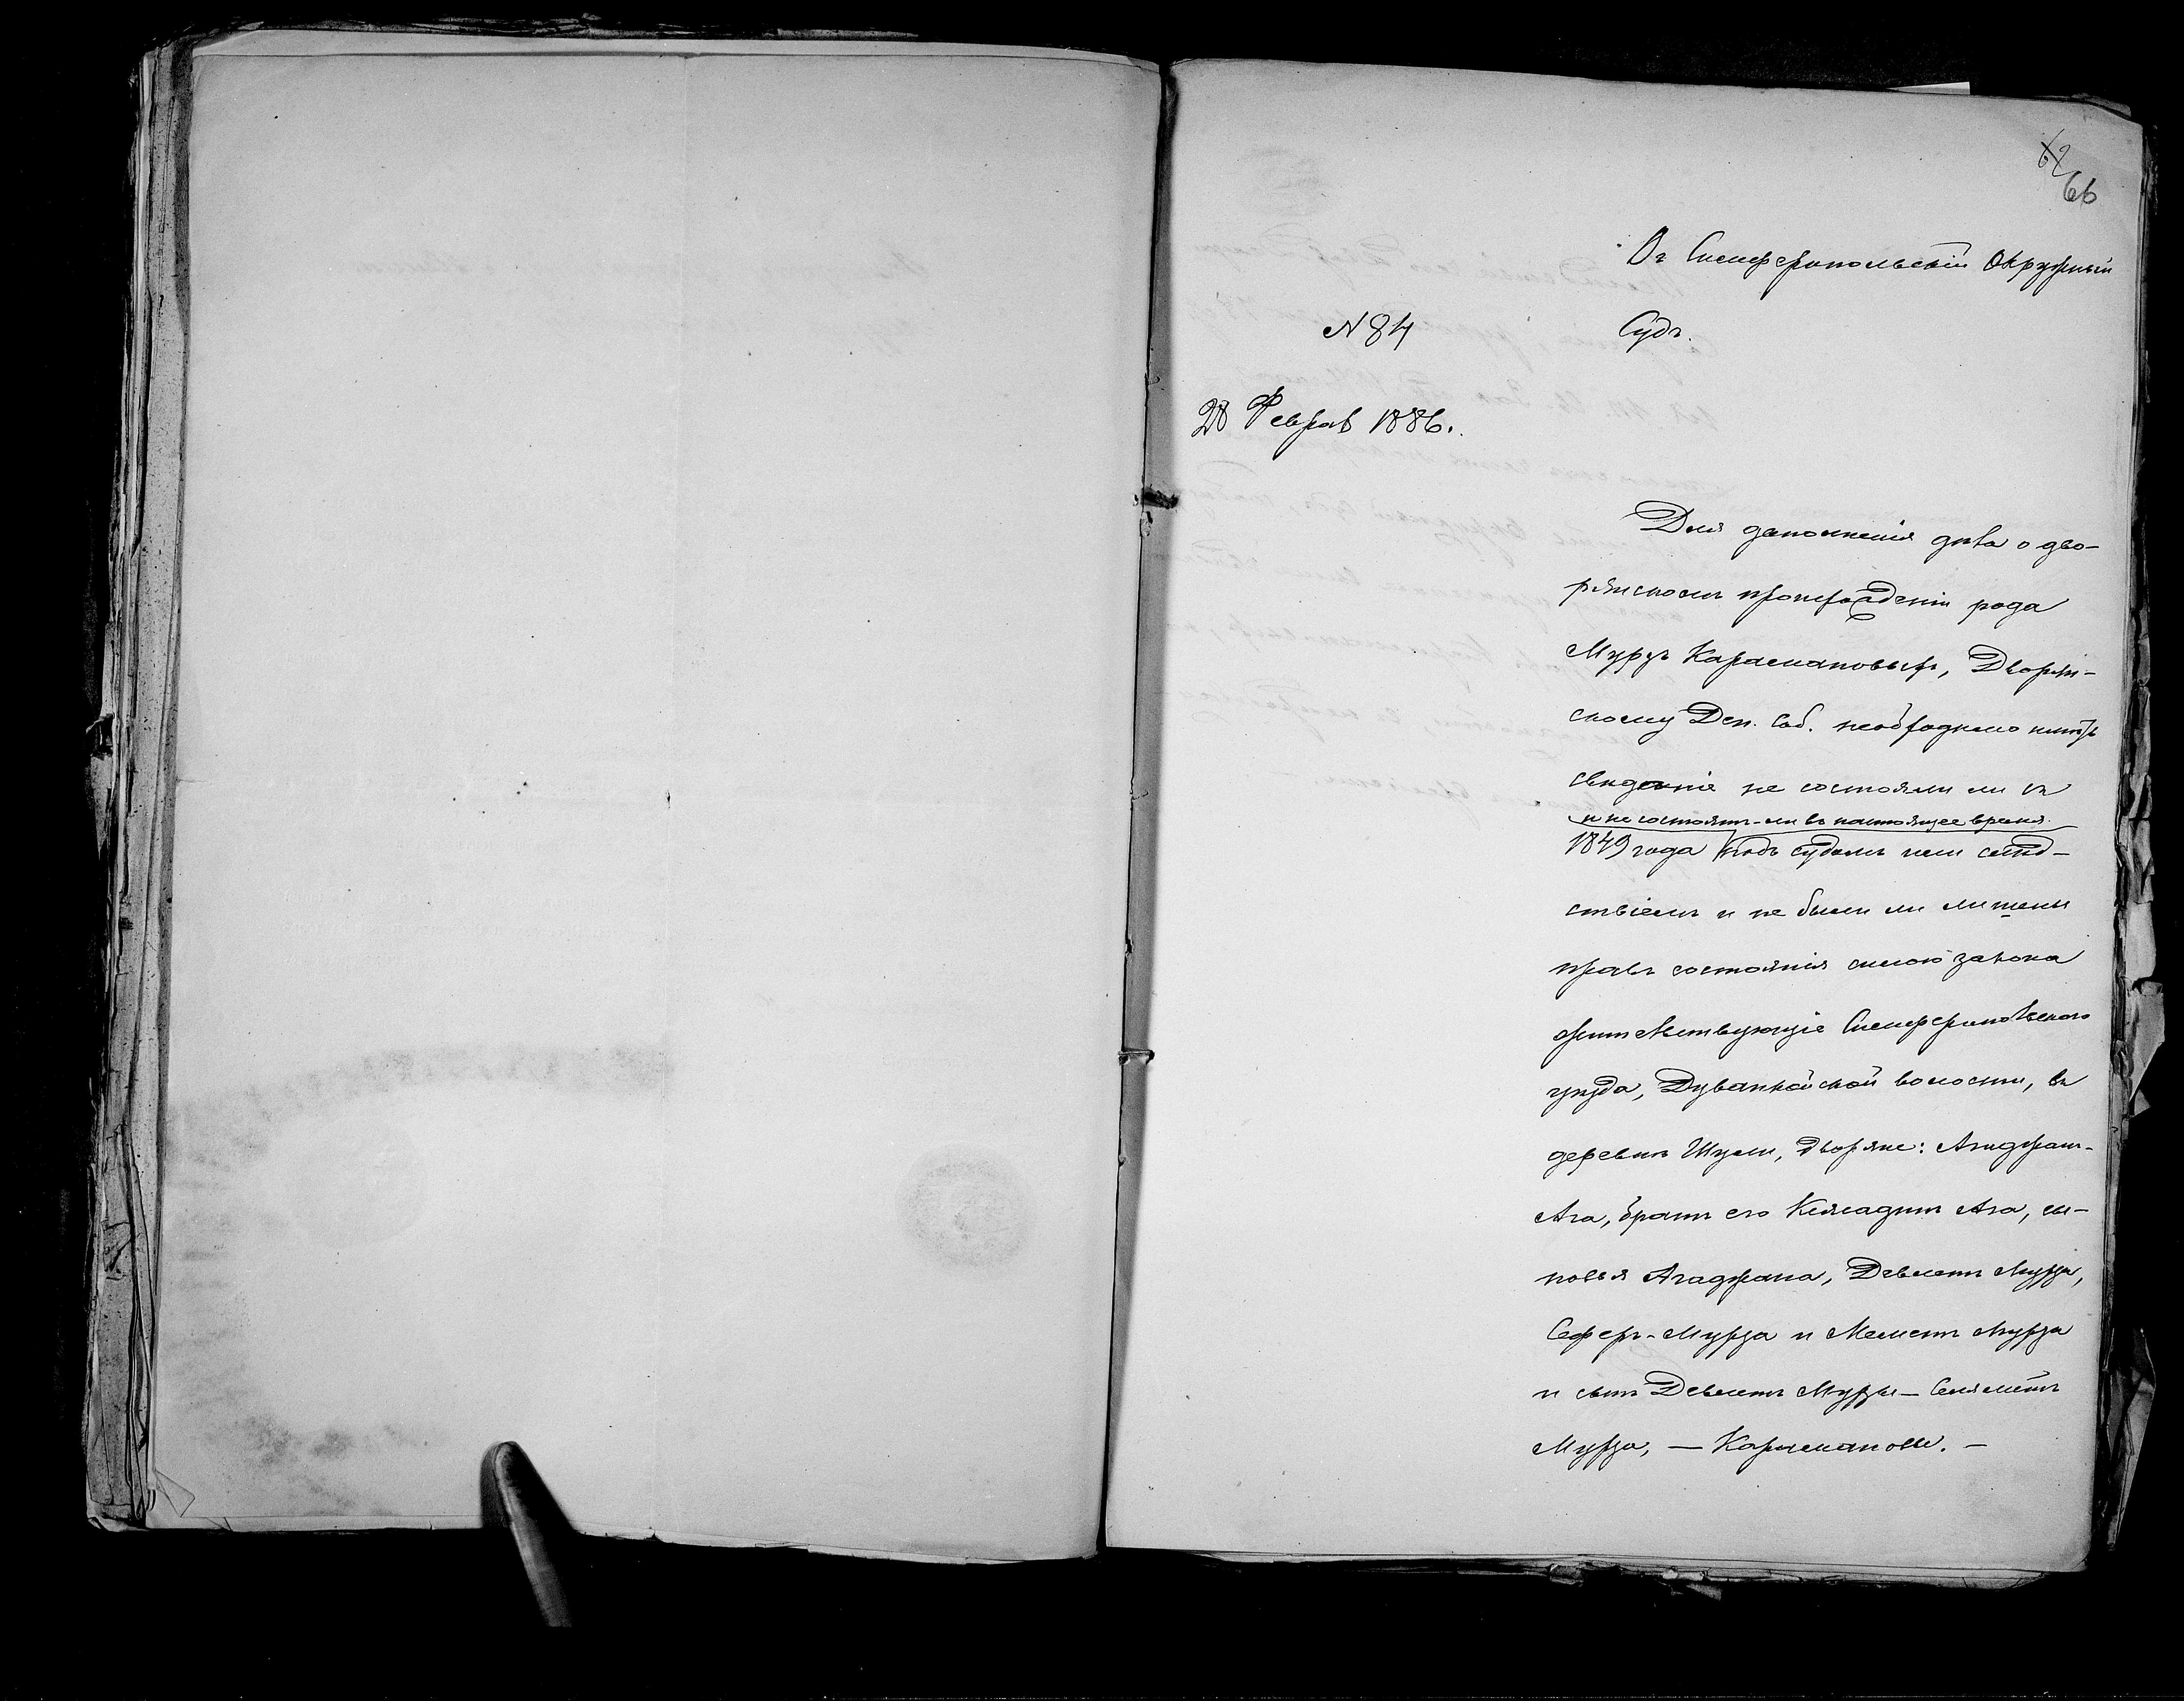 62
66
Въ Симферопольскій Окружный
Судъ.
N 84
28 Феврал 1886.
Для дополненія дѣла о дво-
рянскомъ происхожденіи рода
Мурзъ Карамановыхъ, Дворян-
скому Деп. Соб. необходимо имѣть
сведеніе не состояли ли съ
и не состоятъ-ли въ настоящее время
1849 года подъ судомъ или слѣд-
ствіемъ и не были ли лишены
правъ состоянія силою закона
жительствующіе Симферопольскаго
уѣзда, Дуванкойской волости, въ
деревнѣ Шули, дворяне: Агиджан-
Ага, братъ его Ага, сы-
новья Агаджана, Девлетъ Мурза,
Сеферъ-Мурза и Меметъ Мурза
и сынъ Девлетъ Мурзы — Селяметъ
Мурза, — Карамановы. —